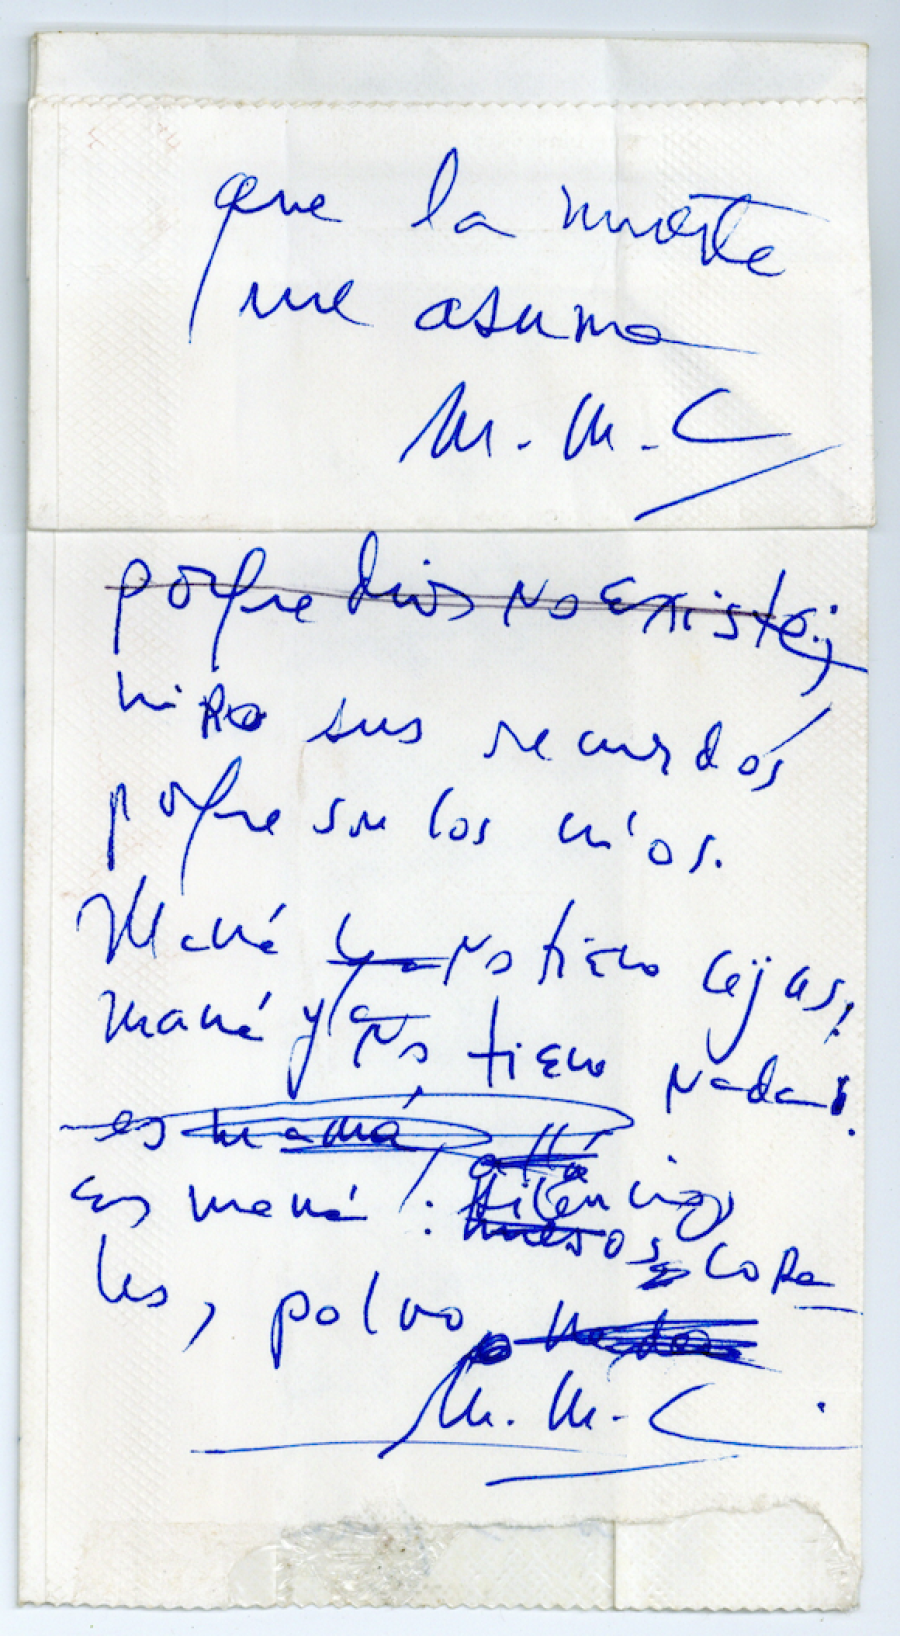 que la muerte
me asuma
M. M. C
porque dios no existe;
miro sus recuerdos
porque son los míos.
Mamá ya no tiene cejas!
mamá ya no tiene nada!
es mamá
allá
Es mamá! : silencio,
huesos, cora
les, polvo
M. M. C.